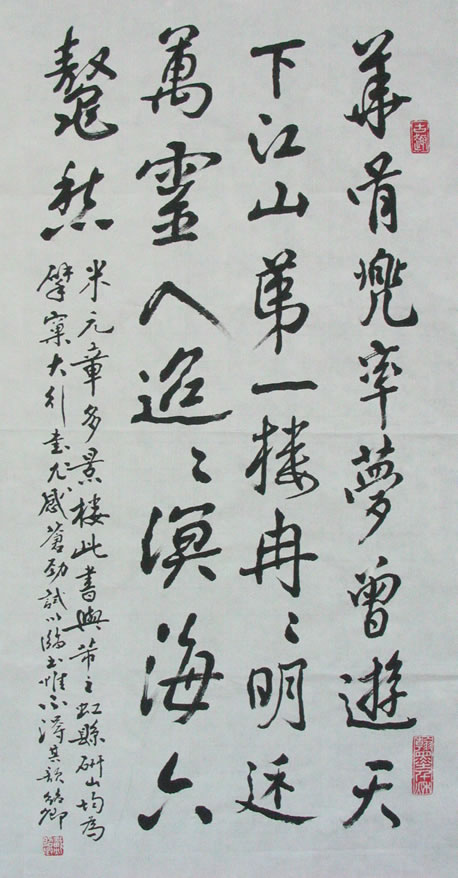 華胥兜率夢曾遊天
下江山第一樓冉〻明廷
萬靈入迢〻溟海六
鰲愁
米元章多景樓此書與芾之虹縣研山均為
擘窠大行書尤感蒼勁試以臨書惟不得其韻